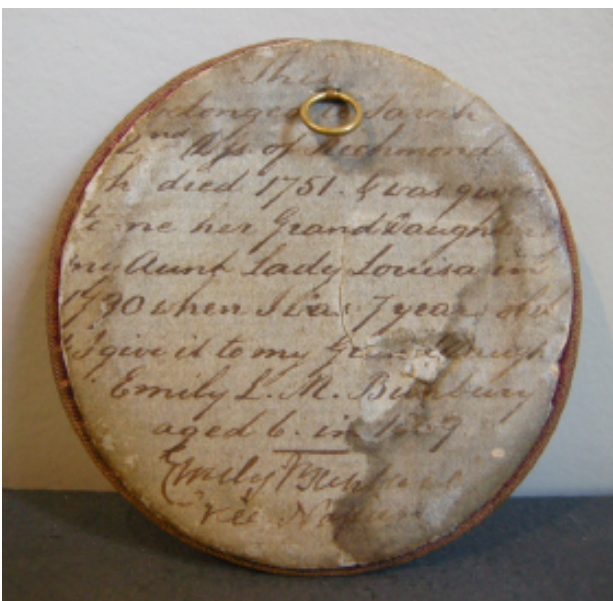 This
belonged to Sarah
2nd Dss of Richmond
wh died 1751. & was given
to me her Grand Daughter
my Aunt Lady Louisa in
1790 when I was 7 years old
& I give it to my
Emily L. M. Bunbury
aged 6. in
Emily Bunbury
née Napier